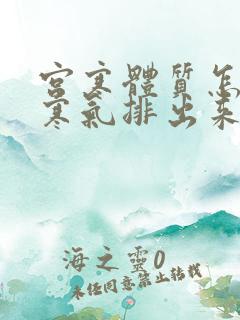 宮寒體質怎
寒氣排出來
海之靈0
未经同意禁止转载